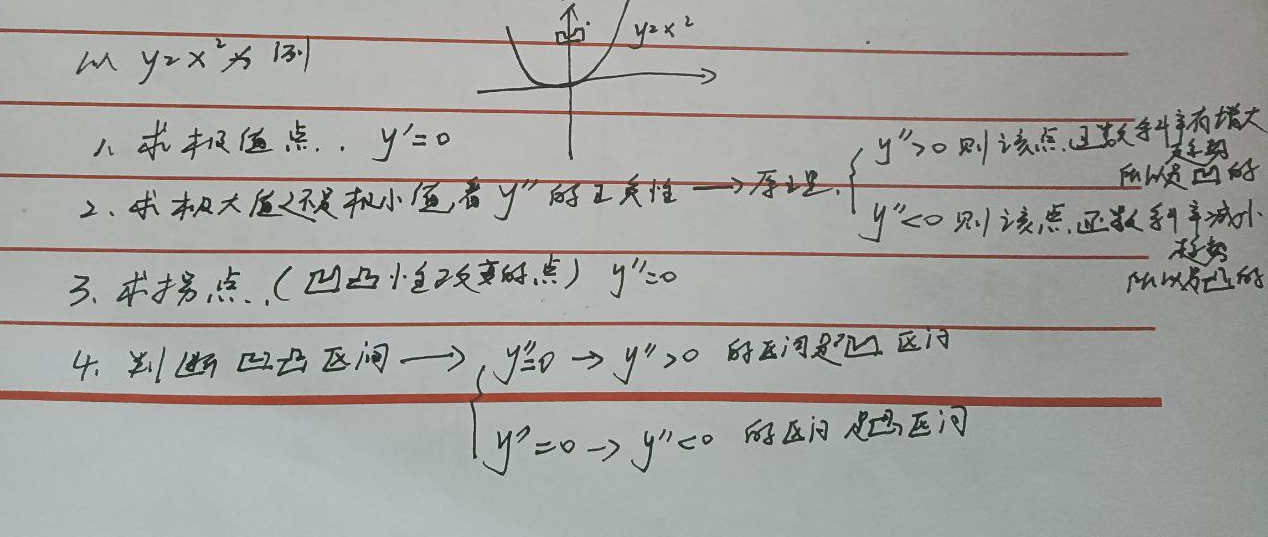 y=x²
凹
以 y=x² 为例
1、求极值点.. y'=0
2、求极大值还是极小值,看 y'' 的正负性 → 原理.
y''>0 则该点.函数斜率有增大
趋势
所以是凹的
y''<0 则该点.函数斜率减小
趋势
所以是凸的
3、求拐点..(凹凸性改变的点) y''=0
4、判断凹凸区间 → y''=0 → y''>0 的区间是凹区间
y''=0 → y''<0 的区间是凸区间